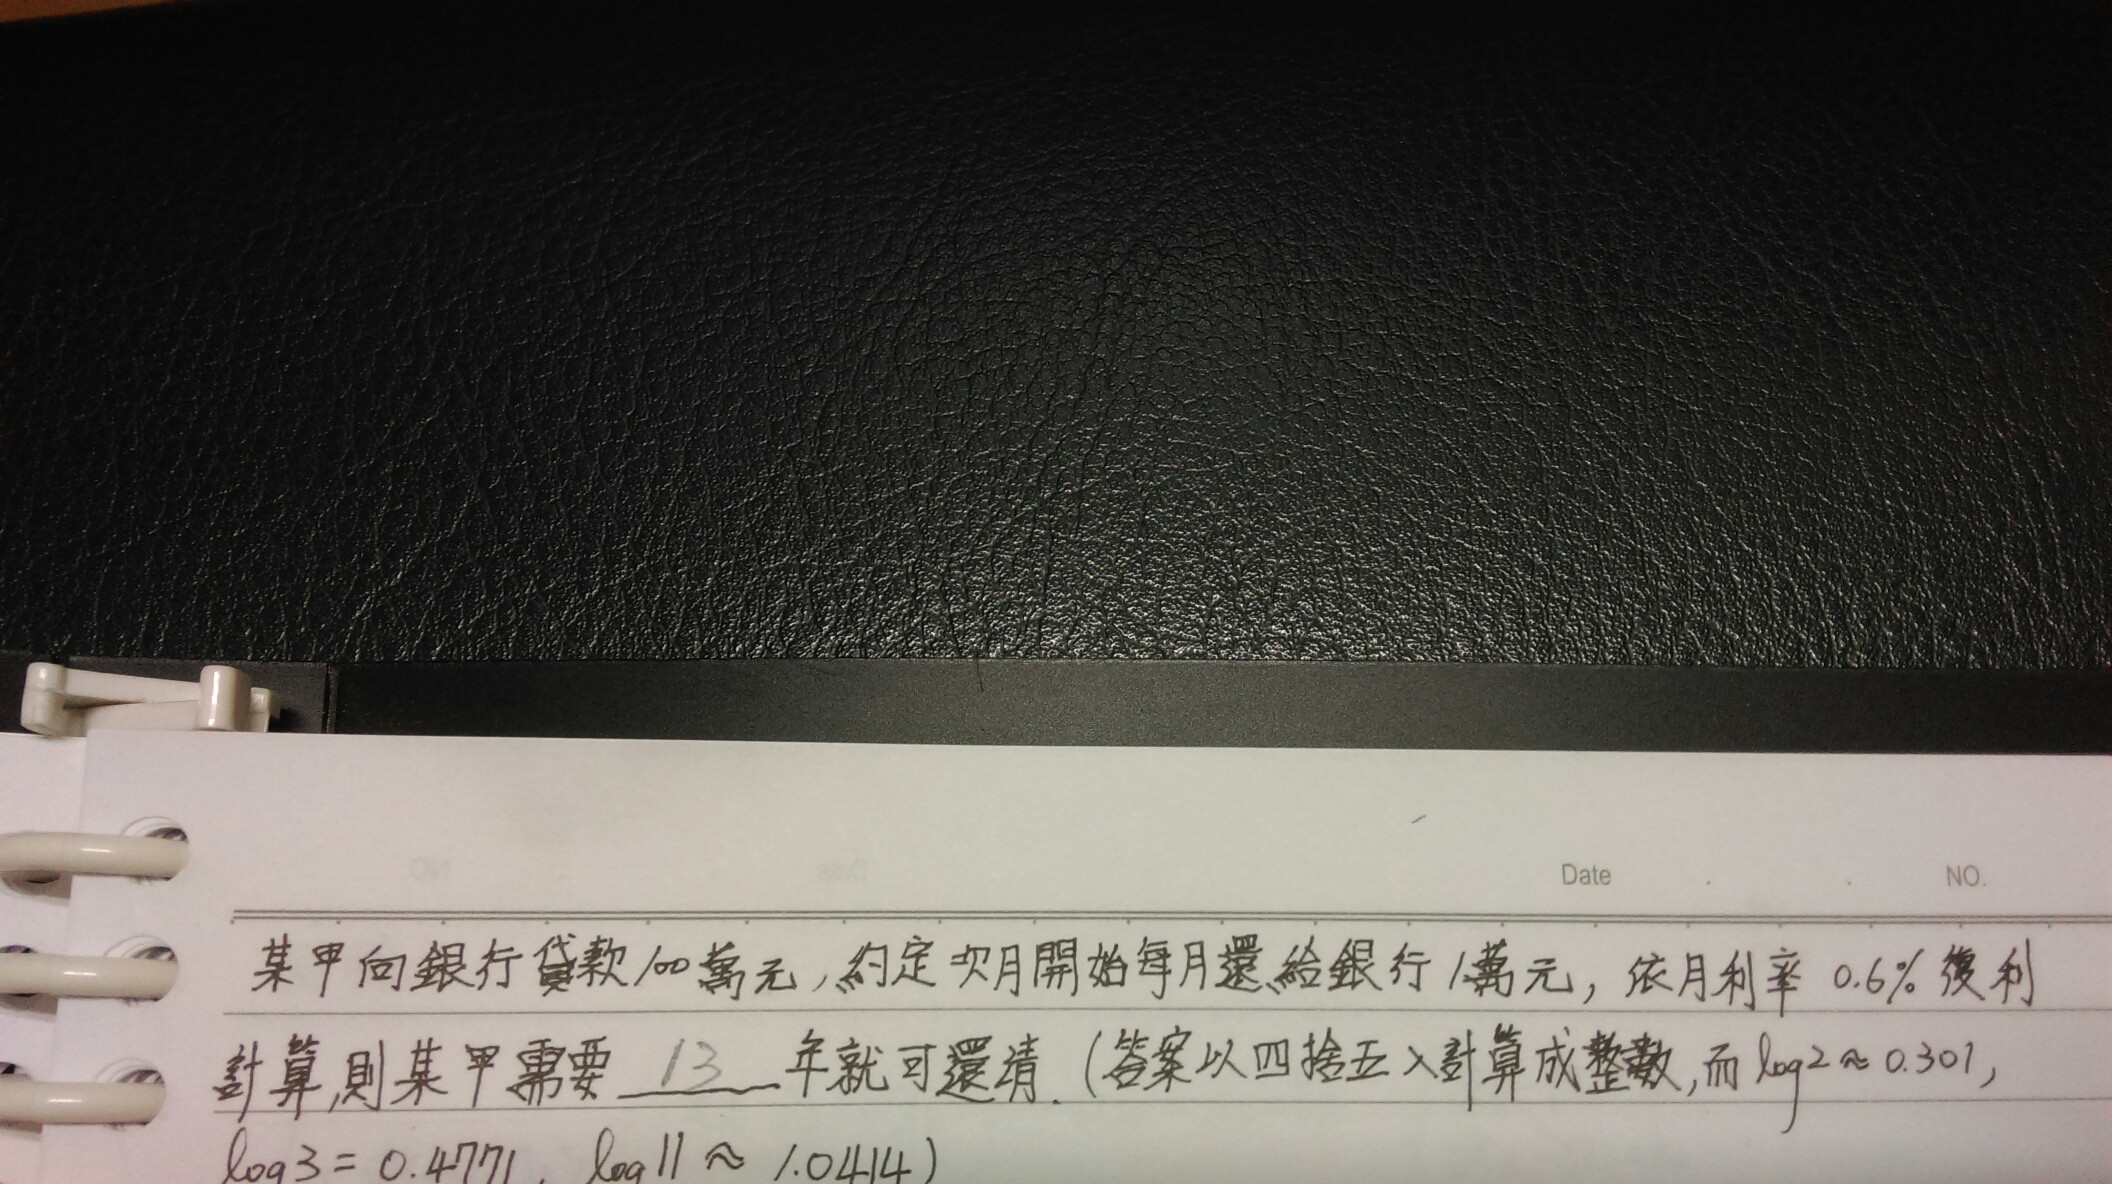 Date . . NO.
某甲向銀行貸款100萬元,約定次月開始每月還給銀行1萬元,依月利率0.6%複利
計算,則某甲需要 13 年就可還清.(答案以四捨五入計算成整數,而log2≈0.301,
log3=0.4771, log11≈1.0414)